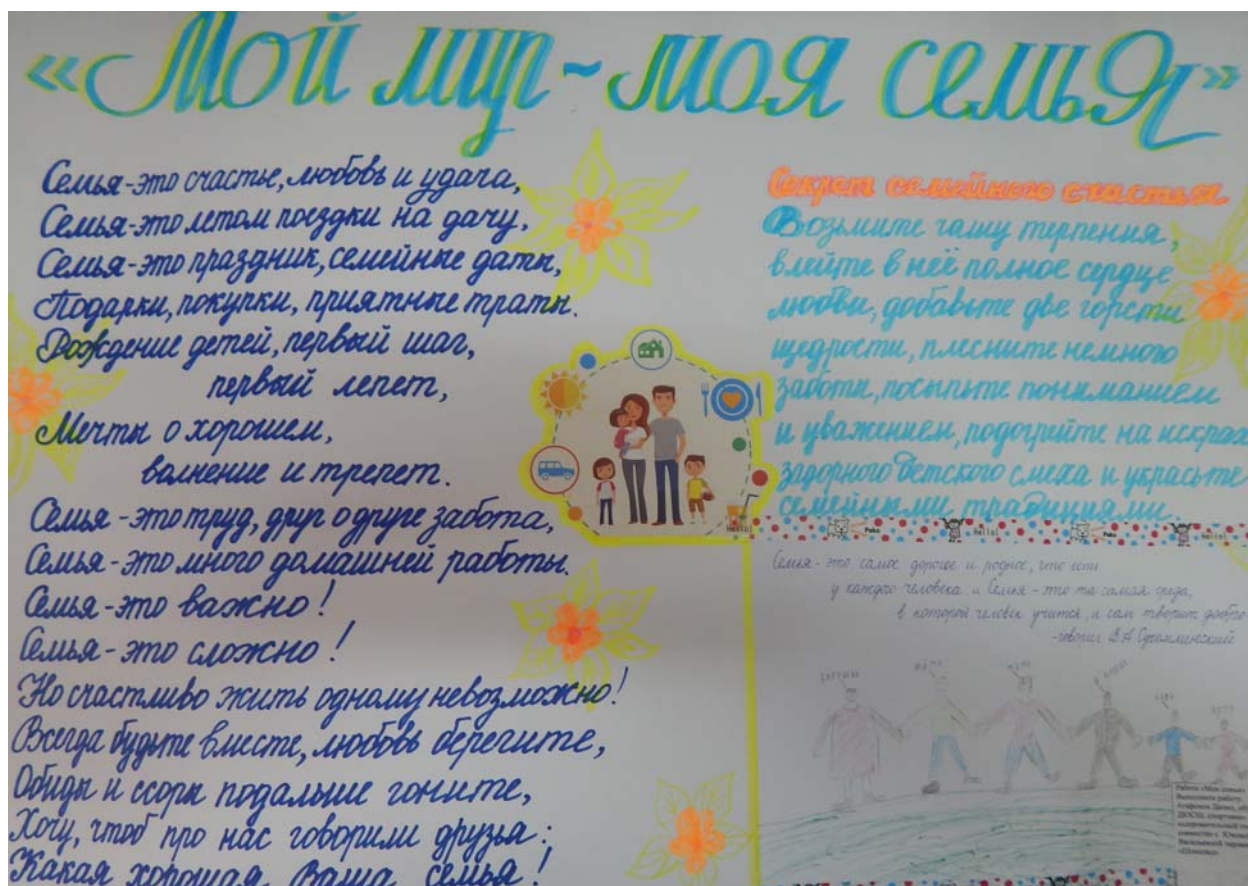 «Мой мир - моя семья»
Семья-это счастье, любовь и удача,
Семья-это летом поездки на дачу,
Семья-это праздник, семейные даты,
Подарки, покупки, приятные траты.
Рождение детей, первый шаг,
первый лепет,
Мечты о хорошем,
волнение и трепет.
Семья-это труд, друг о друге забота,
Семья-это много домашней работы.
Семья-это важно!
Семья-это сложно!
Но счастливо жить одному невозможно!
Всегда будьте вместе, любовь берегите,
Обиды и ссоры подальше гоните,
Хочу, чтоб про нас говорили друзья:
Какая хорошая Ваша семья!
Секрет семейного счастья
Возьмите чашу терпения,
влейте в неё полное сердце
любви, добавьте две горсти
щедрости, плесните немного
заботы, посыпьте пониманием
и уважением, подогрейте на искрах
задорного детского смеха и украсьте
семейными традициями
Hello! Poko Hello! Poko Hello!
Семья - это самое дорогое и родное, что есть
у каждого человека. Семья - это та самая среда,
в которой человек учится, и сам творит добро
-говорил В.А Сухомлинский
мама папа
Работа «Моя семья»
Выполнила работу